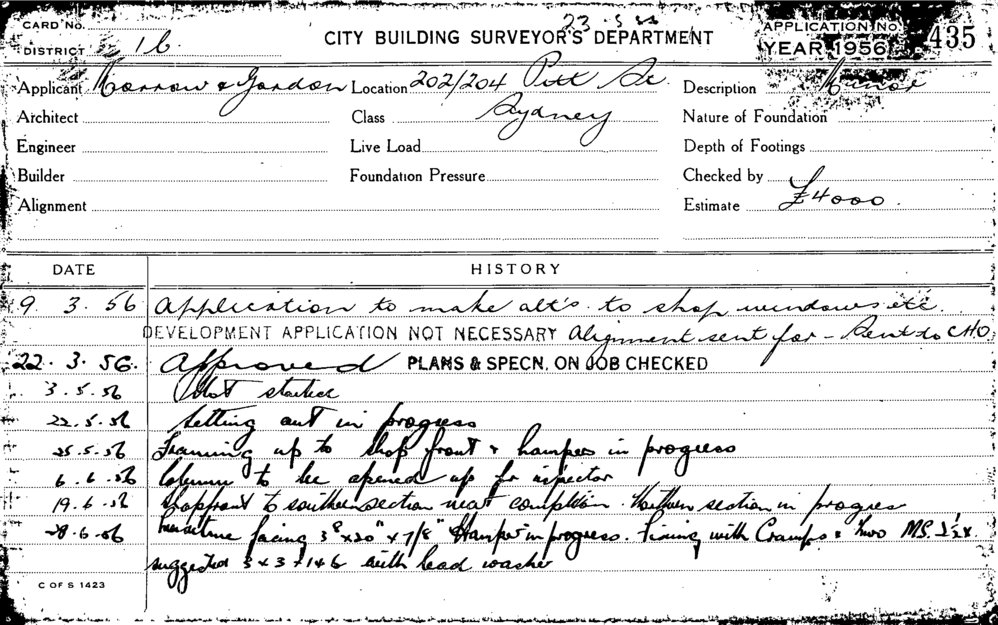 CARD No.
DISTRICT 16.
CITY BUILDING SURVEYOR'S DEPARTMENT
23.5.56
APPLICATION No. 435
YEAR 1956
Applicant Morrow & Gordon Location 202/204 Pitt St. Description Minor
Architect Class Sydney Nature of Foundation
Engineer Live Load Depth of Footings
Builder Foundation Pressure Checked by
Alignment Estimate £4000.
DATE HISTORY
9. 3. 56 Application to make alt's. to shop windows etc.
DEVELOPMENT APPLICATION NOT NECESSARY Alignment sent for - Sent to C.H.O.
22. 3. 56. Approved PLANS & SPECN. ON JOB CHECKED
3.5.56 Not started
22.5.56 Setting out in progress
25.5.56 Framing up to shop front & hamper in progress
6.6.56 Column to be opened up for inspector
19.6.56 Shopfront to southern section near completion. Northern section in progress
28.6.56 facing 3' x 20" x 7/8" Hamper in progress. Fixing with Cramps & Two M.S.
suggested with lead washer
C OF S 1423